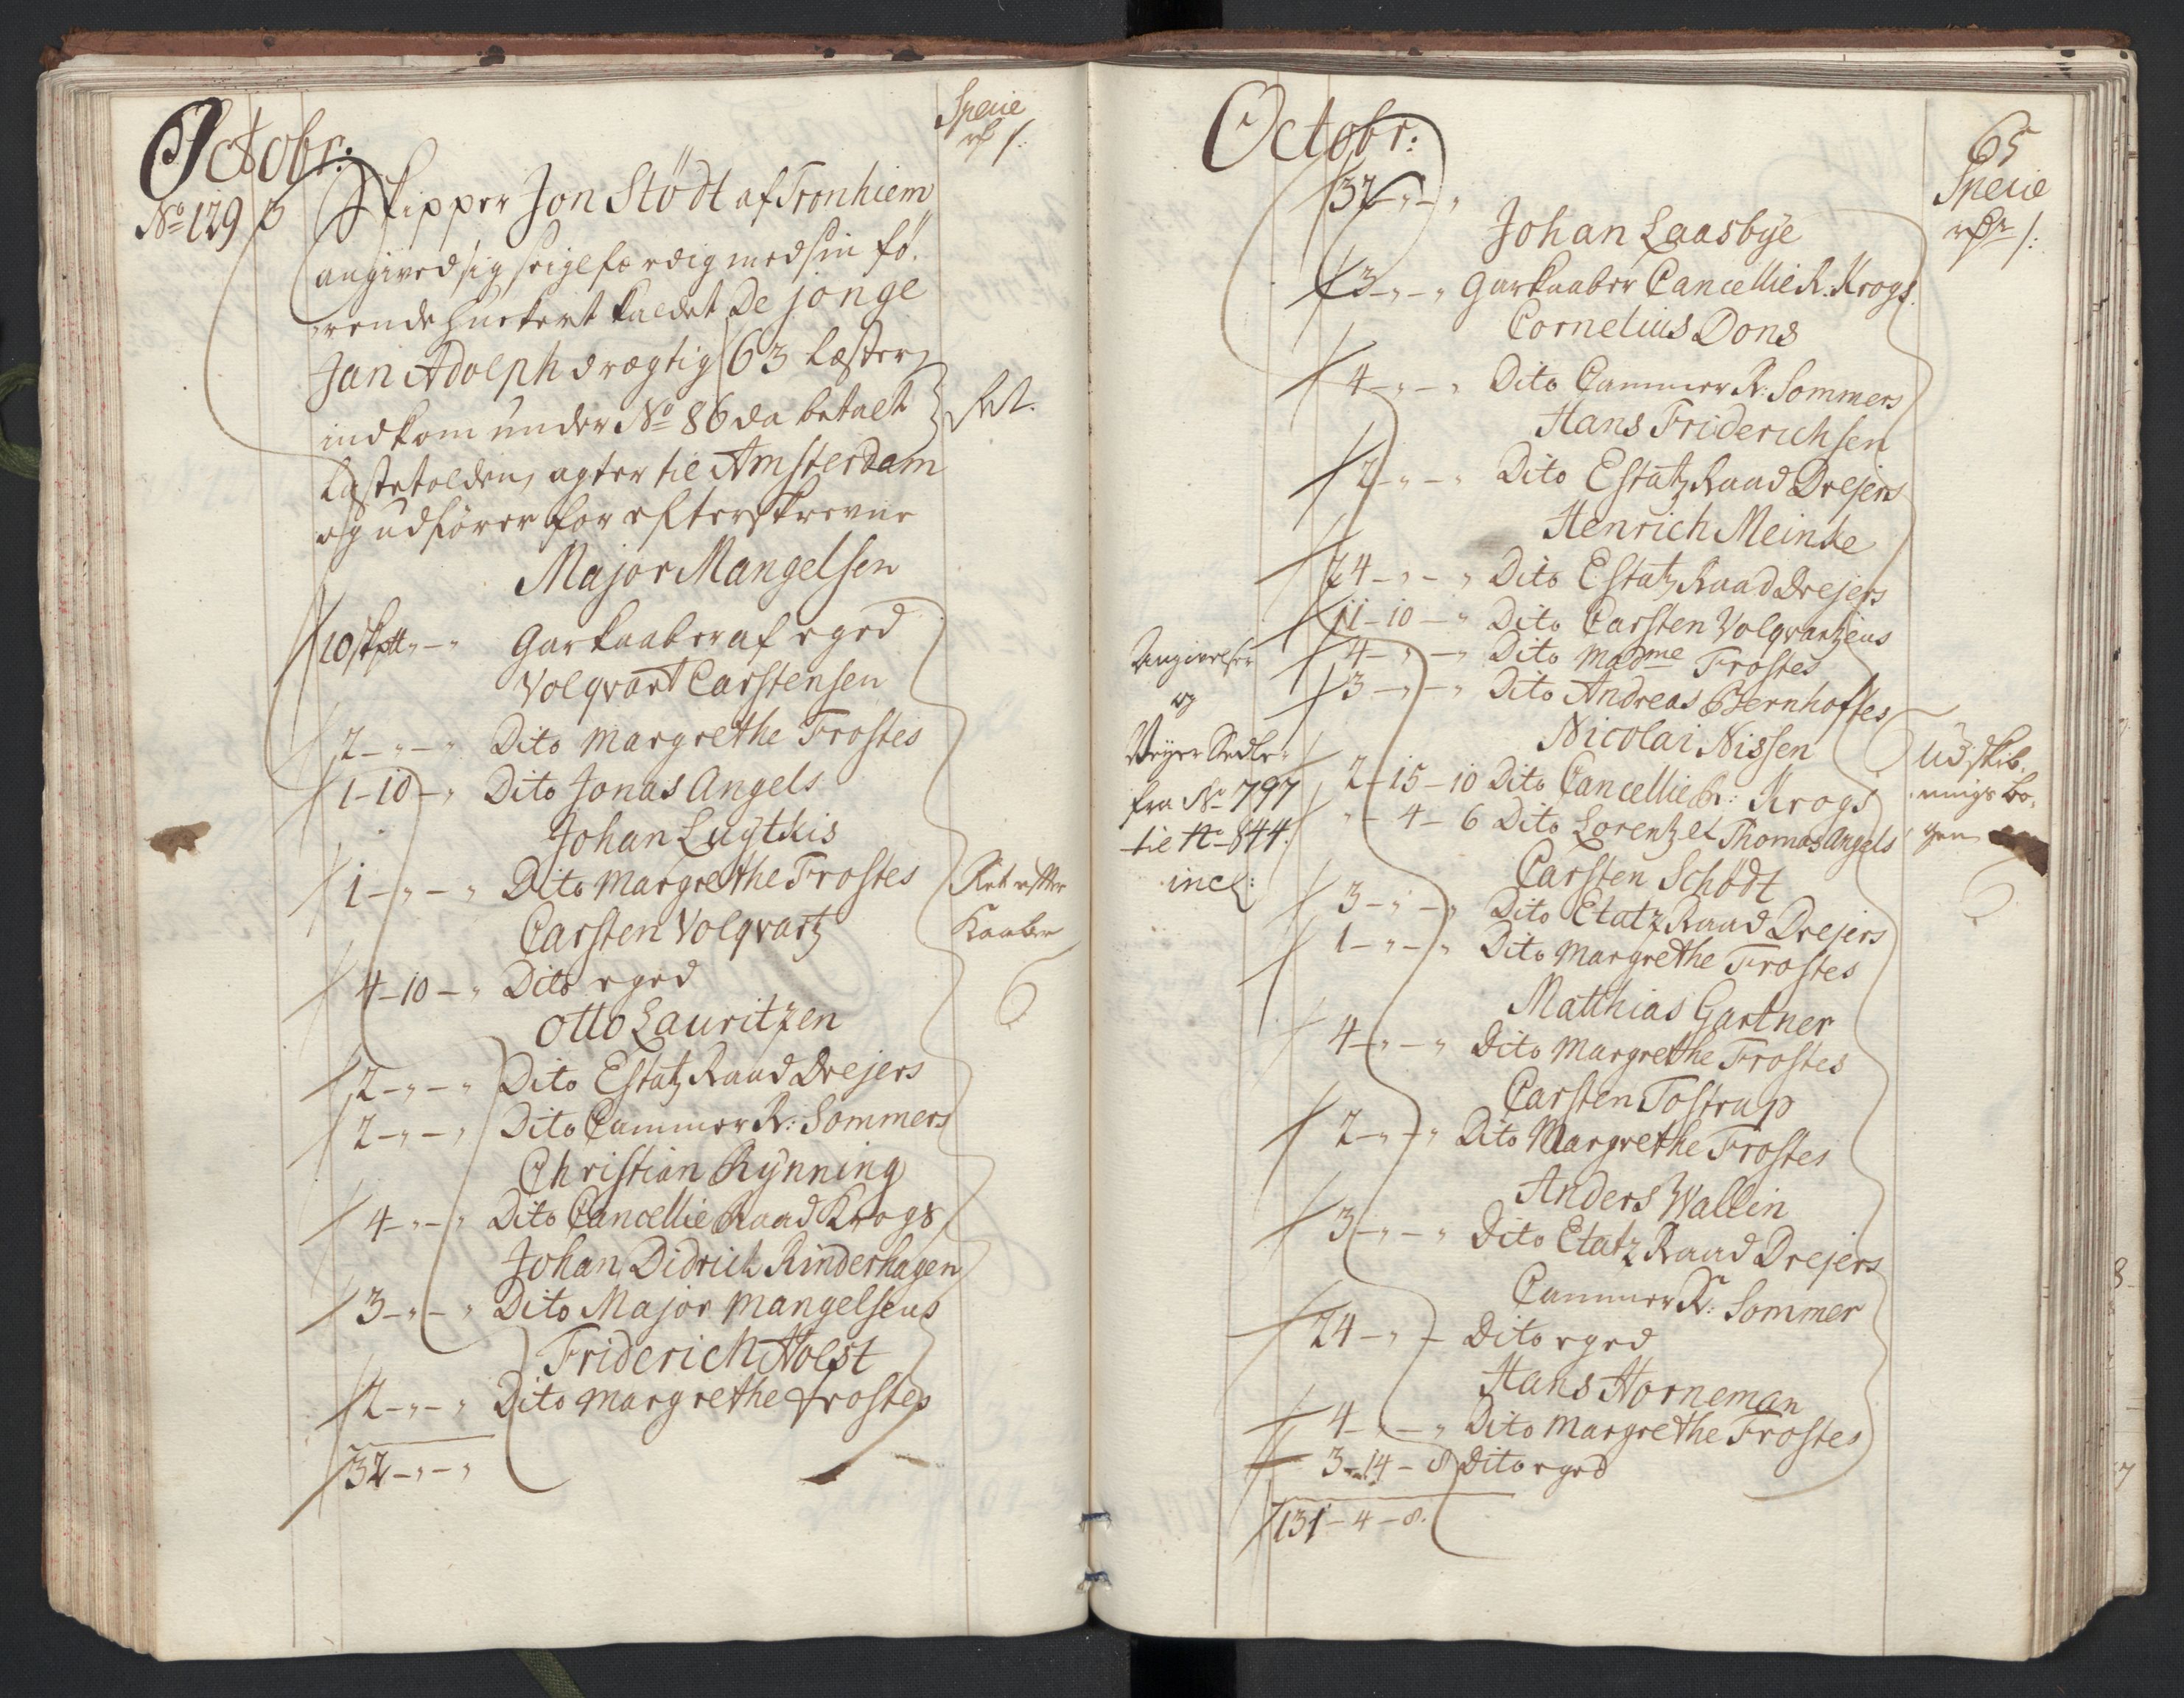 Octobr:
Specie
rd /:
No 129 3 Skipper Jon Stödt af Tronhiem
angived sig seigelfærdig med sin fö¸
rende Huckert kaldet De jonge
Jan Adolph drægtig 63 Læster
indkom under No 86 da betalt
Læstetolden, agter til Amsterdam
og udförer for efterskrevne
Major Mangelsen
10 sk℔ „ - „ Garkaaber af eged
Volqvart Carstensen
2 - „ - „ Dito Margrethe Frostes
1 - 10 - „ Dito Jonas Angels
Johan Luÿtkis
1 - „ - „ Dito Margrethe Frostes
Ret efter
Carsten Volqvartz
Kaaber
4 - 10 - „ Dito eged
Otto Lauritzen
2 - „ - „ Dito Estatz Raad Drejers
2 - „ - „ Dito Cammer R: Sommers
Christian Rÿnning
4 - „ - „ Dito Cancellie Raad Krogs
Johan Didrich Rinderhagen
3 - „ - „ Dito Major Mangelsens
Friderich Holst
2 - „ - „ Dito Margrethe Frostes
32 - „ - „
Octobr:
65
Specie
rdr /:
32 - „ - „
Johan Laasbÿe
3 - „ - „ Garkaaber Cancellie R: Krogs
Cornelius Dons
4 - „ - „ Dito Cammer R: Sommers
Hans Friderichsen
2 - „ - „ Dito Estatz Raad Drejers
Henrich Meinke
24 - „ - „ Dito Estatz Raad Drejers
11 - 10 - „ Dito Carsten Volqvartzens
4 - „ - „ Dito Madme Frostes
3 - „ - „ Dito Andreas Bernhoftes
Angivelser
og
Veÿer Sedler
fra No 797
til No 844.
incl:
Nicolai Nissen
2 - 15 - 10 Dito Cancellie R: Krogs
„ - 4 - 6 Dito Lorentz et Thomas Angels
Udskib¸
nings bo¸
gen
Carsten Schödt
3 - „ - „ Dito Etatz Raad Drejers
1 - „ - „ Dito Margrethe Frostes
Matthias Gartner
4 - „ - „ Dito Margrethe Frostes
Carsten Tostrup
2 - „ - „ Dito Margrethe Frostes
Anders Wallin
3 - „ - „ Dito Etatz Raad Drejers
Cammer R: Sommer
24 - „ - Dito eged
Hans Horneman
4 - „ - „ Dito Margrethe Frostes
3 - 14 - 8 Dito eged
131 - 4 - 8.